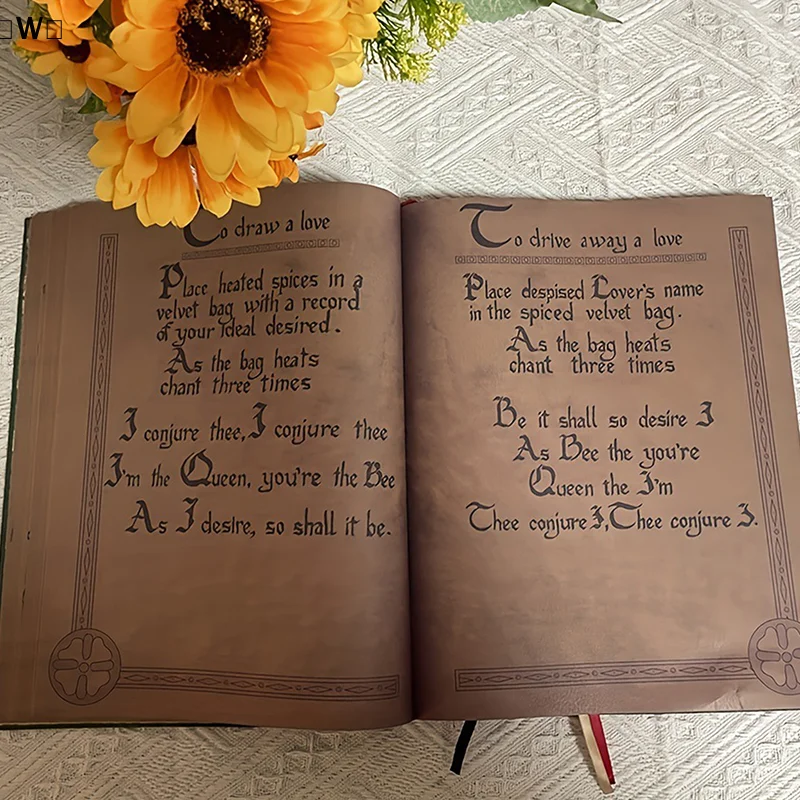 W
To draw a love
Place heated spices in a
velvet bag with a record
of your ideal desired.
As the bag heats
chant three times
I conjure thee, I conjure thee
I'm the Queen, you're the Bee
As I desire, so shall it be.
To drive away a love
Place despised Lover's name
in the spiced velvet bag.
As the bag heats
chant three times
Be it shall so desire I
As Bee the you're
Queen the I'm
Thee conjure I, Thee conjure I.